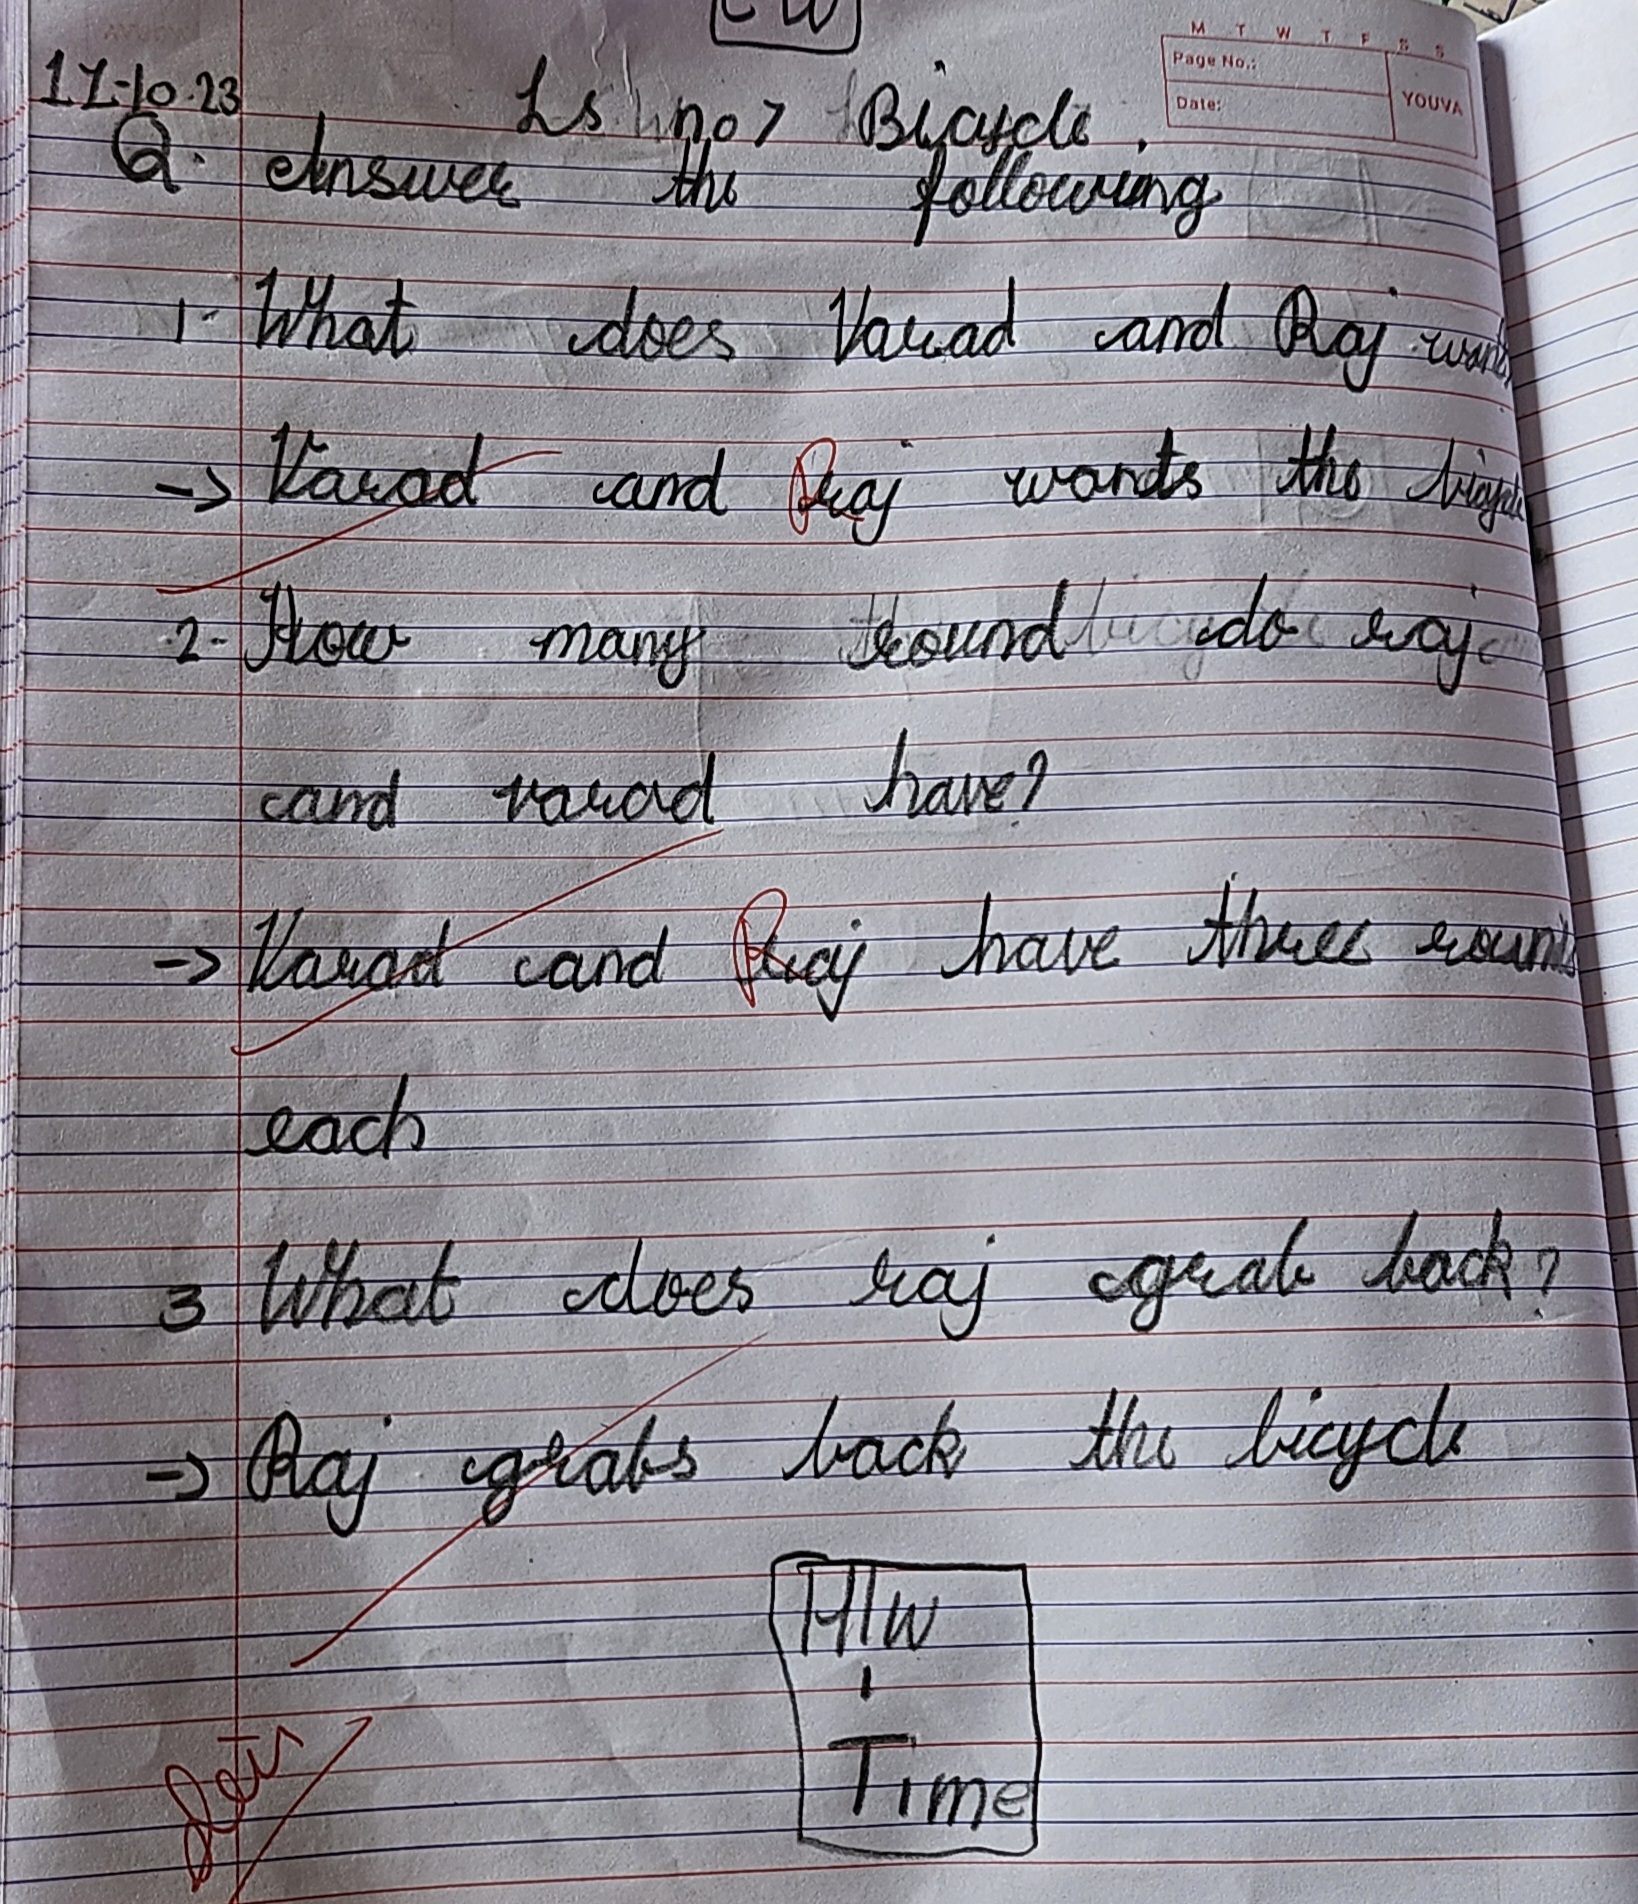 CW
M T W T F S S
Page No.:
Date:
YOUVA
17.10.23
Ls no 7 Bicycle.
Q. Answer the following
1. What does Varad and Raj want
→ Varad and Raj wants the bicycle
2. How many round do raj
and varad have?
→ Varad and Raj have three rounds
each
3 What does raj grab back?
→ Raj grabs back the bicycle
H/W
Time